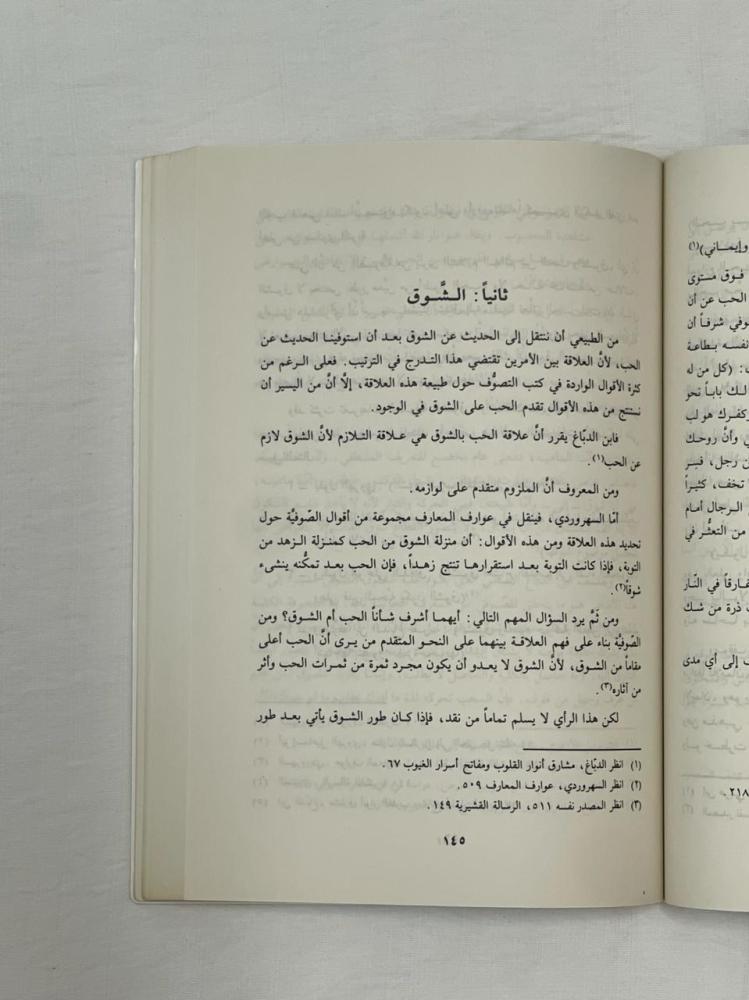 ثانياً: الشَّوق
من الطبيعي أن ننتقل إلى الحديث عن الشوق بعد أن استوفينا الحديث عن
الحب، لأنَّ العلاقة بين الأمرين تقتضي هذا التدرج في الترتيب. فعلى الرغم من
كثرة الأقوال الواردة في كتب التصوُّف حول طبيعة هذه العلاقة، إلاَّ أنَّ من اليسير أن
نستنتج من هذه الأقوال تقدم الحب على الشوق في الوجود.
فابن الدبّاغ يقرر أنَّ علاقة الحب بالشوق هي علاقة التلازم لأنَّ الشوق لازم
عن الحب(١).
ومن المعروف أنَّ الملزوم متقدم على لوازمه.
أمّا السهروردي، فينقل في عوارف المعارف مجموعة من أقوال الصّوفيَّة حول
تحديد هذه العلاقة ومن هذه الأقوال: أن منزلة الشوق من الحب كمنزلة الزهد من
التوبة، فإذا كانت التوبة بعد استقرارها تنتج زهداً، فإن الحب بعد تمكُّنه ينشىء
شوقاً(٢).
ومن ثَمَّ يرد السؤال المهم التالي: أيهما أشرف شأناً الحب أم الشوق؟ ومن
الصّوفيَّة بناء على فهم العلاقة بينهما على النحو المتقدم من يرى أنَّ الحب أعلى
مقاماً من الشوق، لأنَّ الشوق لا يعدو أن يكون مجرد ثمرة من ثمرات الحب وأثر
من آثاره(٣).
لكن هذا الرأي لا يسلم تماماً من نقد، فإذا كان طور الشوق يأتي بعد طور
(١) انظر الدبّاغ، مشارق أنوار القلوب ومفاتح أسرار الغيوب ٦٧.
(٢) انظر السهروردي، عوارف المعارف ٥٠٩.
(٣) انظر المصدر نفسه ٥١١، الرسالة القشيرية ١٤٩.
١٤٥
وإيماني)(١)
فوق مستوى
الحب عن أن
وفي شرفاً أن
نفسه بطاعة
: (كل من له
لك باباً نحو
كفرك هو لب
وأنَّ روحك
ن رجل، فبر
تخف، كثيراً
الرجال أمام
من التعثُّر في
فارقاً في النّار
ذرة من شك
إلى أي مدى
٢١٨